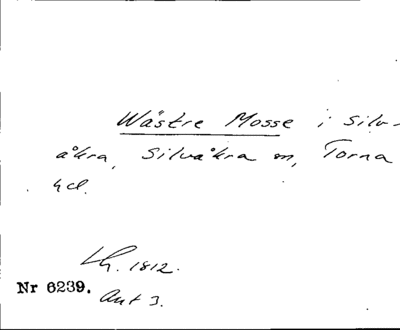 Wästre Mosse i Silv-
åkra, Silvåkra sn, Torna
hd.
Lh. 1812.
Nr 6239.
Akt 3.